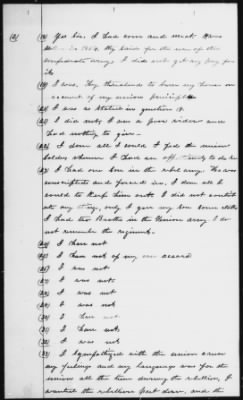 (2) (14) Yes Sir. I had corn and meat
in 1864. They paid for the use of the
Confederate Army I did not get any pay for
it.
(15) I was, They threatened to burn my house on
account of my union principles
(16) I was as stated in question 14.
(17) I did not, I am a poor widow and
had nothing to give.
(18) I done all I could I fed the union
Soldiers whenever I had an
(19) I had one son in the rebel army. He was
conscripted and forced in. I done all I
could to keep him out. I did not contribute
any thing, only I gave my son some clothes
I had two Brothers in the Union army I do
not remember the regiment.
I have not
I have not of my own accord
I was not
I was not
I was not
I was not
I have not
I have not
I was not
(33) I sympathized with the union cause
my feelings and my language was for the
union all the time during the rebellion, I
wanted the rebellion put down, and the